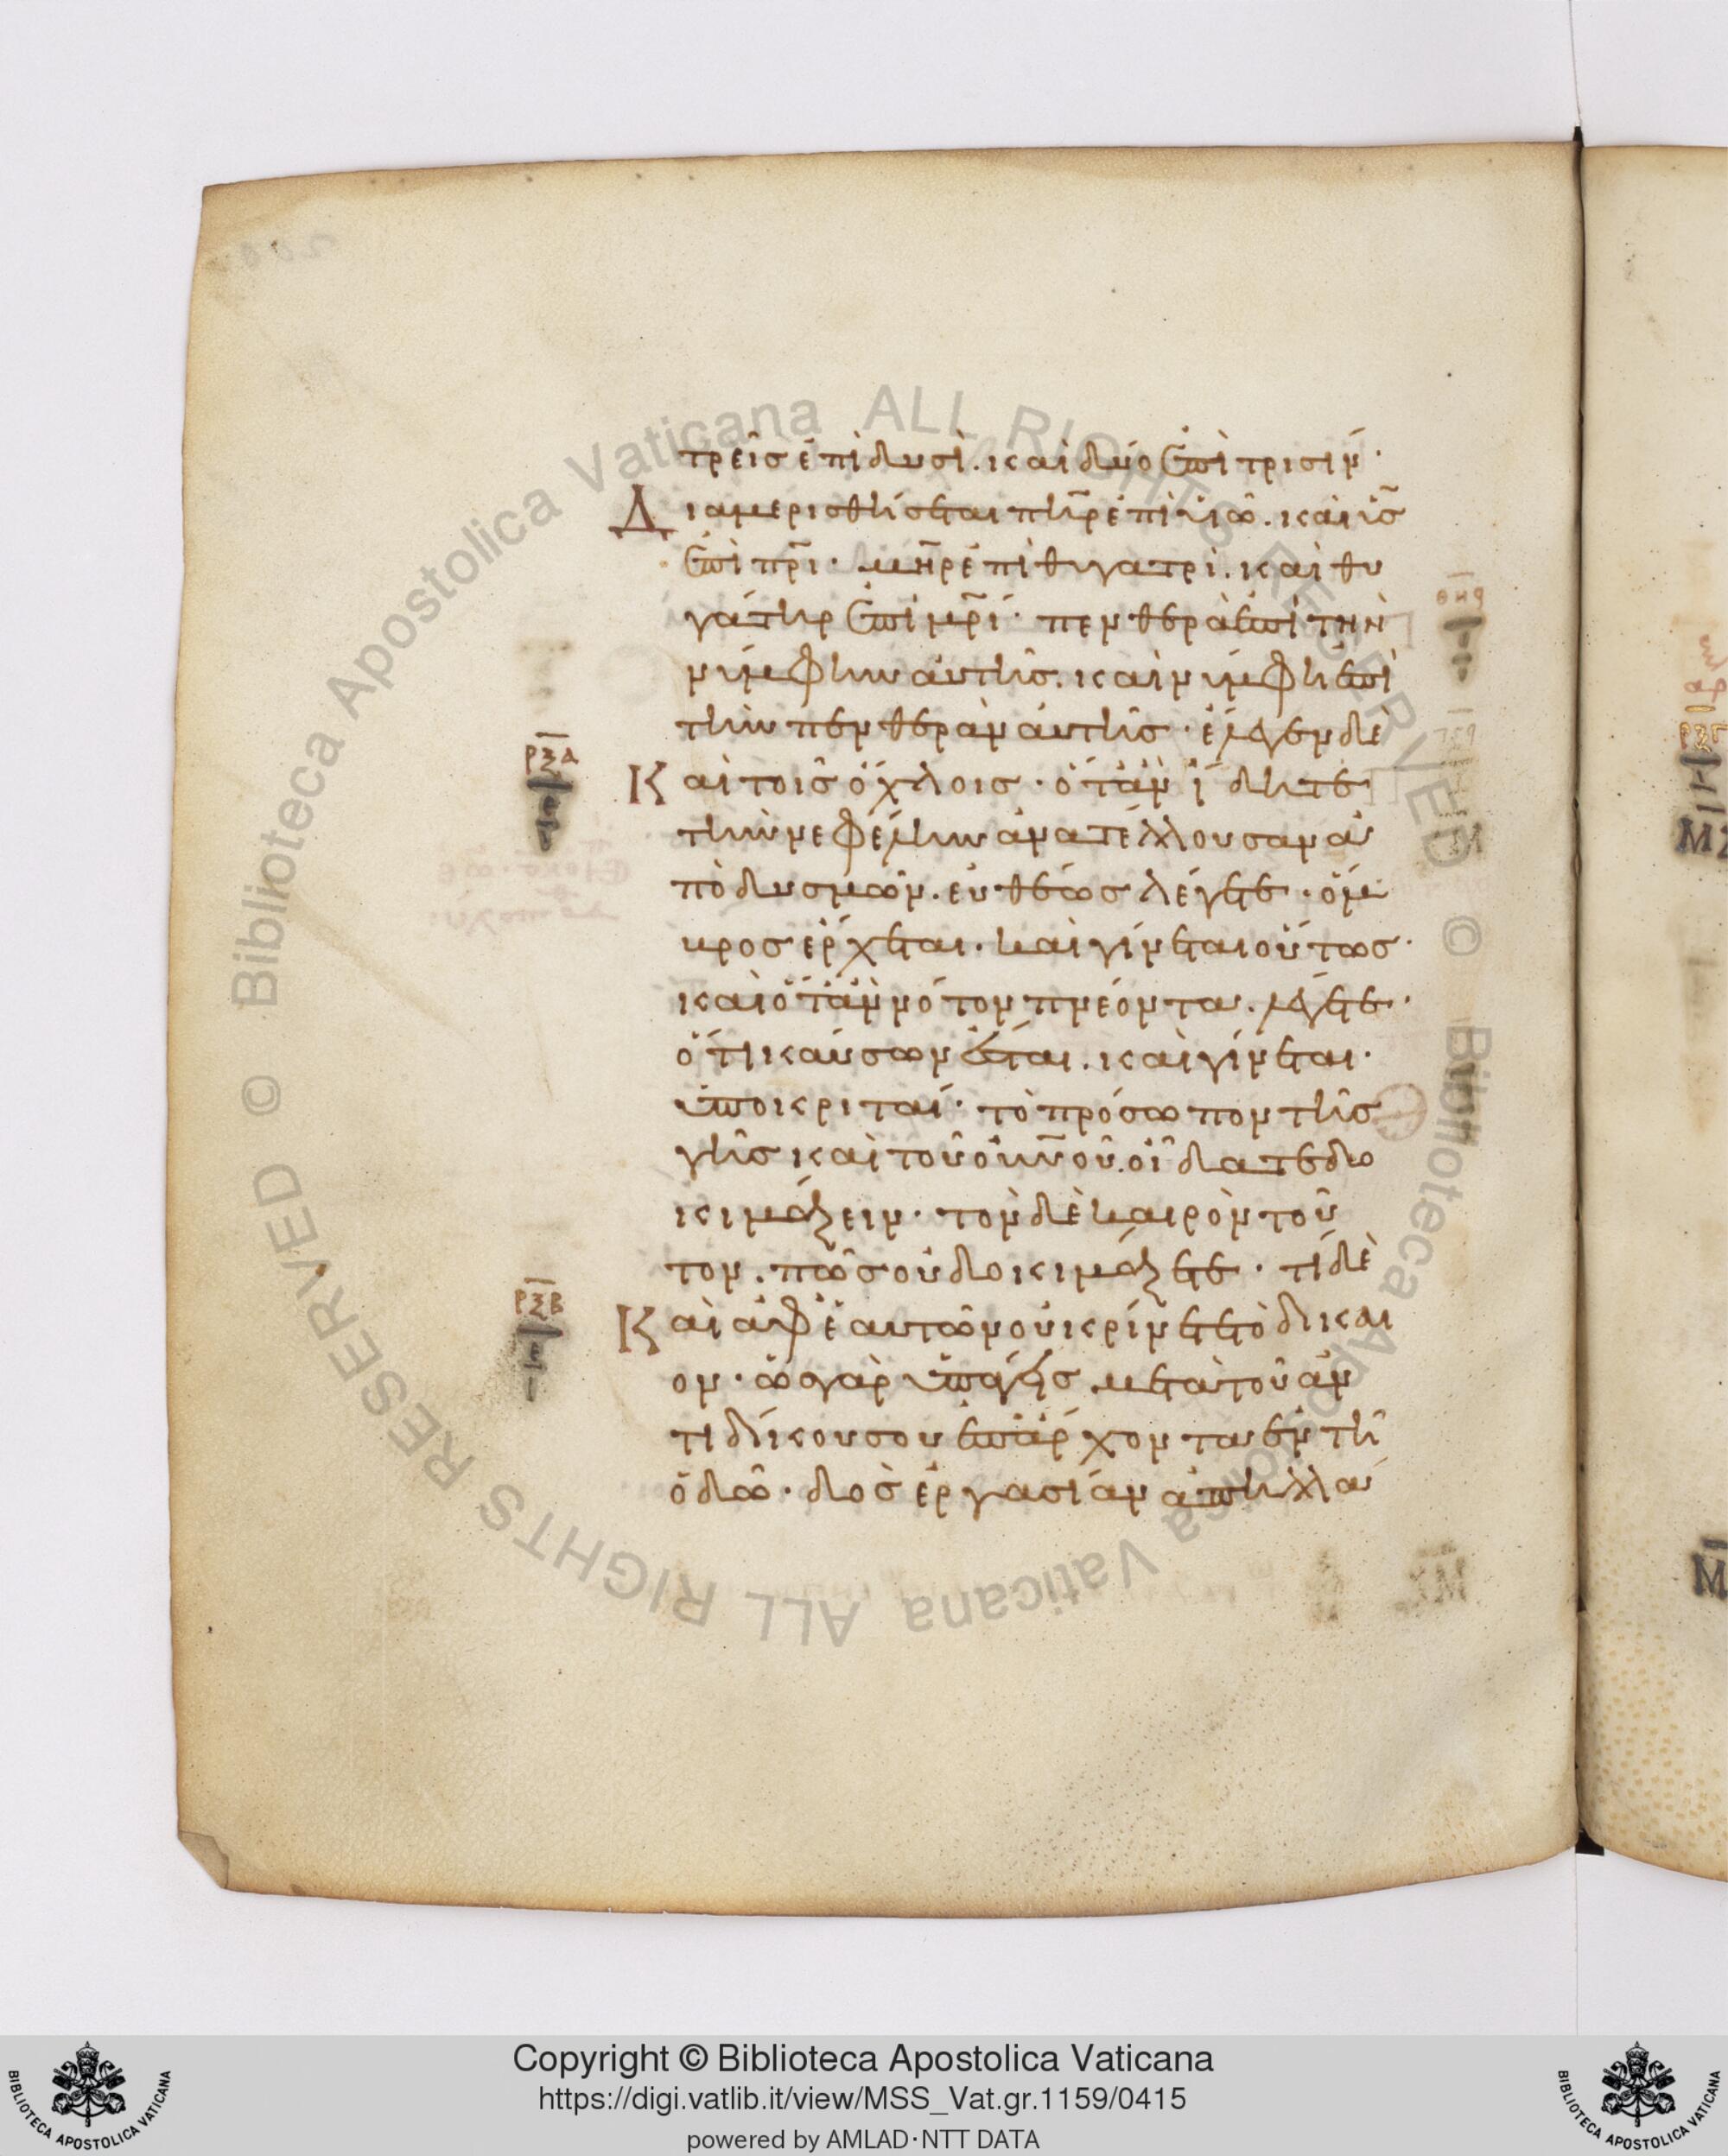 τρεῖς ἐπὶ δυσὶ. καὶ δύο ἐπὶ τρισίν·
Διαμερισθήσεται πηρ ἐπὶ υἱῶ. καὶ υς
ἐπὶ πρι· μηρ ἐπὶ θυγατρὶ. καὶ θυ
γάτηρ ἐπὶ μρί· πενθερὰ ἐπὶ τὴν
νύμφην αὐτῆς. καὶ νύμφη ἐπὶ
τὴν πενθερὰν αὐτῆς· ἔλεγεν δε
ρξα
Καὶ τοῖς ὄχλοις· ὅταν ἴδητε
τὴν νεφέλην ἀνατέλλουσαν ἀ
πὸ δυσμῶν. εὐθέως λέγετε· ὄμ
βρος ἔρχεται. καὶ γίνεται οὕτως·
καὶ ὅταν νότον πνέοντα. λέγετε·
ὅτι καύσων ἔσται. καὶ γίνεται·
ὑποκριταί· τὸ πρόσωπον τῆς
γῆς καὶ τοῦ οὐνοῦ. οἴδατε δο
κιμάζειν· τὸν δὲ καιρὸν τοῦ
τον. πῶς οὐ δοκιμάζετε· τί δὲ
ρξβ
Καὶ ἀφ' ἑαυτῶν οὐ κρίνετε τὸ δίκαι
ον· ὡς γὰρ ὑπάγεις μετὰ τοῦ ἀν
τιδίκου σου ἐπ' ἄρχοντα ἐν τῆ
ὁδῶ· δὸς ἐργασίαν ἀπηλλά
Copyright © Biblioteca Apostolica Vaticana
https://digi.vatlib.it/view/MSS_Vat.gr.1159/0415
powered by AMLAD·NTT DATA
BIBLIOTECA APOSTOLICA VATICANA
BIBLIOTECA APOSTOLICA VATICANA
© Biblioteca Apostolica Vaticana ALL RIGHTS RESERVED
© Biblioteca Apostolica Vaticana ALL RIGHTS RESERVED